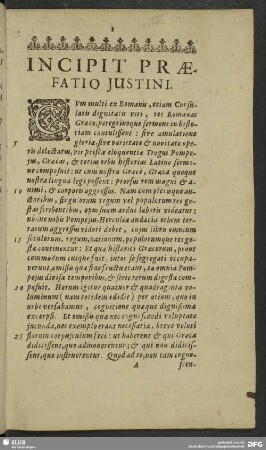 I
INCIPIT PRÆ-
FATIO JUSTINI.
CUm multi ex Romanis, etiam Consu-
laris dignitatis viri, res Romanas
Græco, peregrinoque sermone in histo-
riam contulissent: sive æmulatione
5 gloriæ, sive varietate & novitate ope-
ris delectatus, vir priscæ eloquentiæ Trogus Pompe-
jus, Græcas, & totius orbis historias Latino sermo-
ne composuit: ut cum nostra Græcè, Græca quoque
nostra lingua legi possent: prorsus rem magni & a-
10 nimi, & corporis aggressus. Nam cum plerisque au-
ctoribus, singulorum regum vel populorum res ge-
stas scribentibus, opus suum ardui laboris videatur:
nonne nobis Pompejus Herculea audacia orbem ter-
rarum aggressus videri debet, cujus libris omnium
15 seculorum, regum, nationum, populorumque res ge-
stæ continentur: Et quæ historici Græcorum, prout
commodum cuique fuit, inter se segregati occupa-
verunt, omissis quæ sine fructu erant, ea omnia Pom-
pejus divisa temporibus, & serie rerum digesta com-
20 posuit. Horum igitur quatuor & quadraginta vo-
luminum (nam totidem edidit) per otium, quo in
urbe versabamur, cognitione quæque dignissima
excerpsi. Et omissis quæ nec cognoscendi voluptate
jucunda, nec exemplo erant necessaria, breve veluti
25 florum corpusculum feci: ut haberent & qui Græca
didicissent, quo admonerentur; & qui non didicis-
sent, quo instruerentur. Quod ad te, non tam cogno-
A scen-
SLUB
DFG